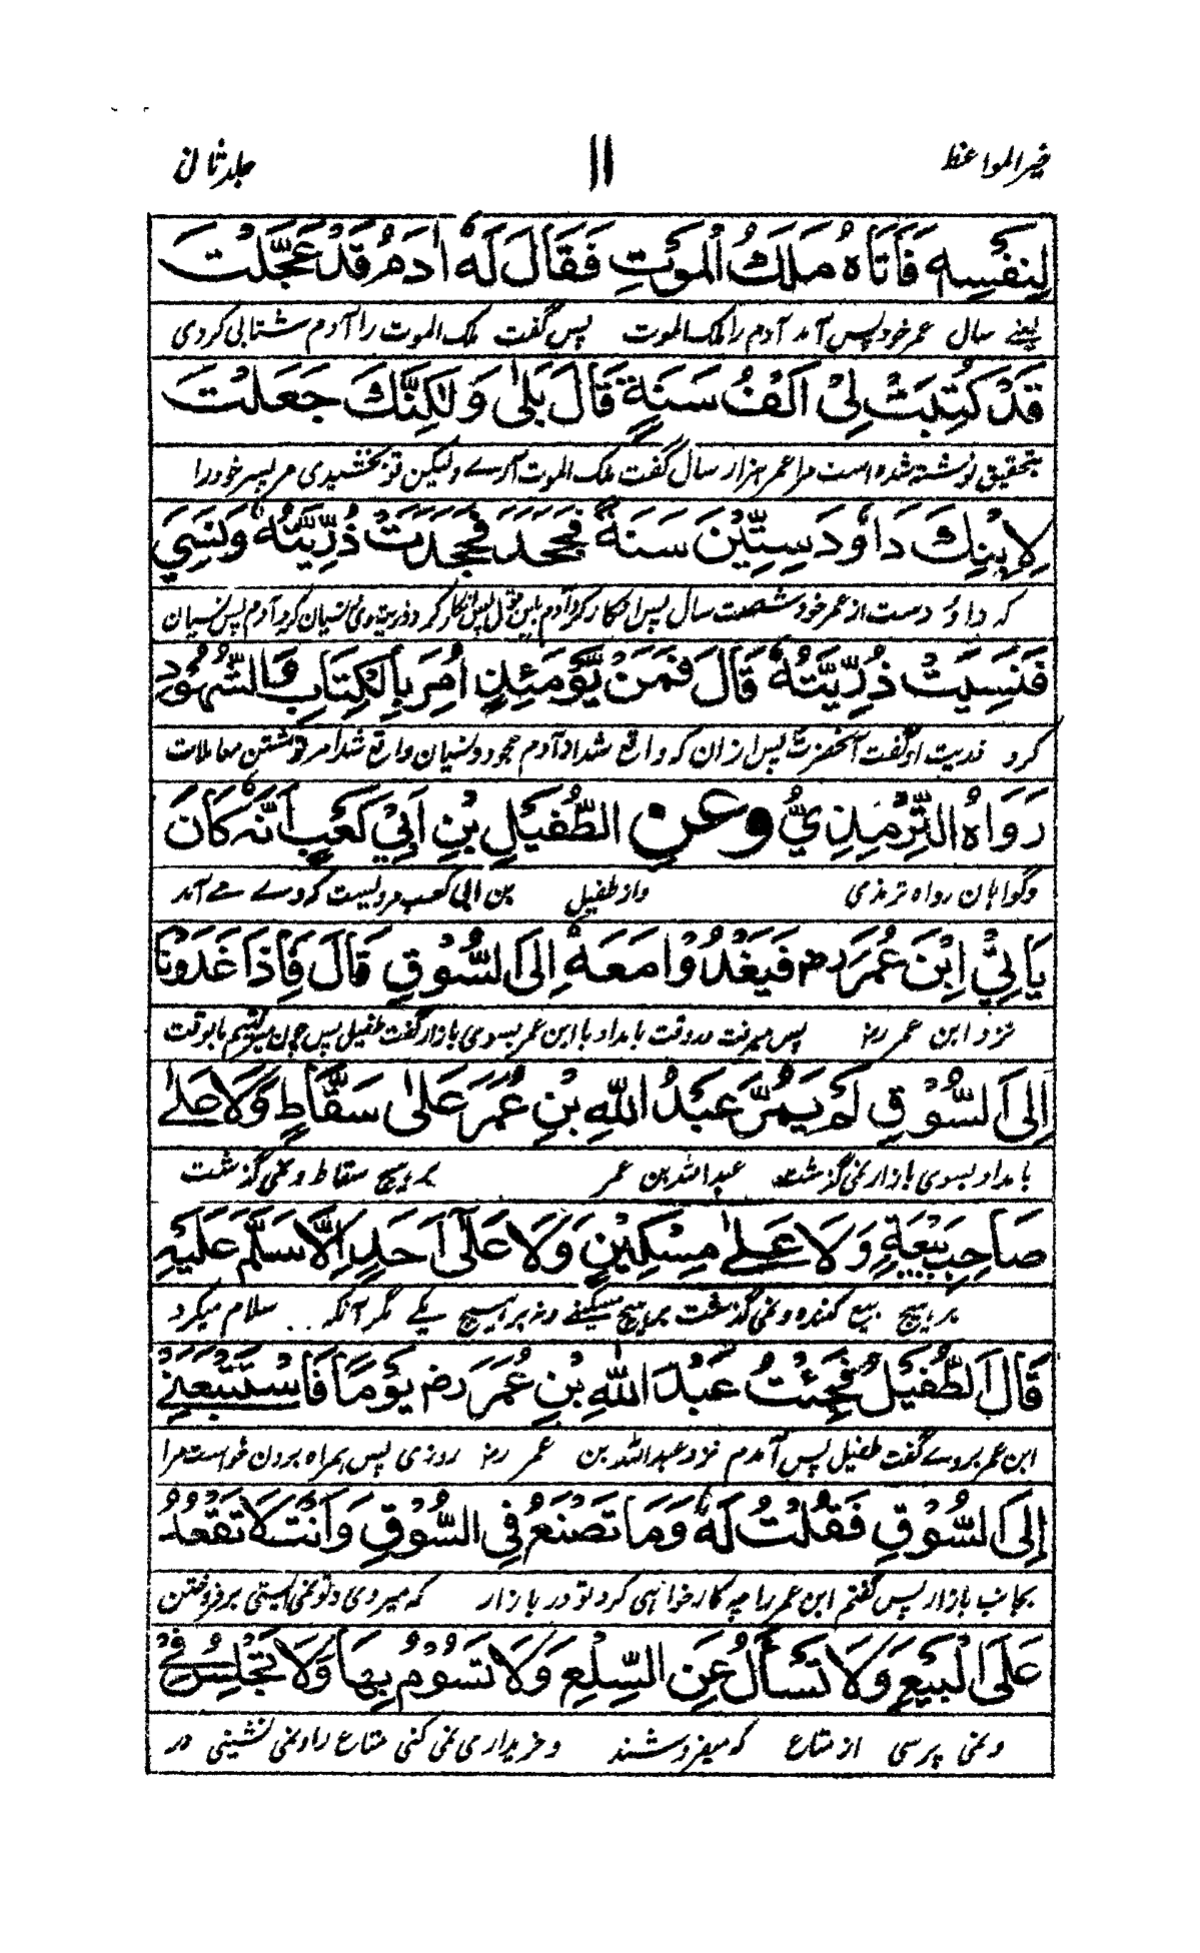 خیرالمواعظ ۱۱ جلد ثانی
لِنَفْسِهٖ فَاَتَاهُ مَلَكُ الْمَوْتِ فَقَالَ لَهٗ اٰدَمُ قَدْ عَجَّلْتَ
یعنے سال عمر خود پس آمد آدم را ملک الموت پس گفت ملک الموت را آدم شتابی کردی
قَدْ كُتِبَتْ لِیْ اَلْفُ سَنَةٍ قَالَ بَلٰی وَلٰكِنَّكَ جَعَلْتَ
بتحقیق نوشته شده است مرا عمر هزار سال گفت ملک الموت آرے ولیکن تو بخشیدی مر پسر خود را
لِاِبْنِكَ دَاوٗدَ سِتِّیْنَ سَنَةً فَجَحَدَ فَجَحَدَتْ ذُرِّیَّتُهٗ وَنَسِیَ
که داؤد دست از عمر خود شصت سال پس انکار کرد آدم پس انکار کرد ذریت وی نسیان کرد آدم پس نسیان
فَنَسِیَتْ ذُرِّیَّتُهٗ قَالَ فَمَنْ یَّوْمَئِذٍ اُمِرَ بِالْكِتَابِ وَالشُّهُوْدِ
کرد ذریت او گفت آنحضرت پس از زان که واقع شد از آدم جحود و نسیان واقع شد امر نوشتن معاملات
رَوَاهُ التِّرْمِذِیُّ وَعَنِ الطُّفَیْلِ بْنِ اَبِیْ كَعْبٍ اَنَّهٗ كَانَ
وگواهان رواه ترمذی واز طفیل بن ابی کعب مرویست که وے مے آمد
یَأْتِیْ اِبْنَ عُمَرَ رض فَیَغْدُوْا مَعَهٗ اِلَی السُّوْقِ قَالَ فَاِذَا غَدَوْنَا
نزد ابن عمر رض پس میرفت در وقت بامداد با ابن عمر بسوی بازار گفت طفیل پس چون میرفتیم با بوقت
اِلَی السُّوْقِ لَمْ یَمُرَّ عَبْدُ اللّٰهِ بْنِ عُمَرَ عَلٰی سَقَّاطٍ وَّلَا عَلٰے
بامداد بسوی بازار نمی گذشت عبد الله بن عمر بر هیچ سقاط و نمی گذشت
صَاحِبِ بَیْعَةٍ وَلَا عَلٰے مِسْكِیْنٍ وَّلَا عَلٰی اَحَدٍ اِلَّا سَلَّمَ عَلَیْهِ
بر هیچ بیع کننده و نمی گذشت بر هیچ مسکینے و نه بر هیچ یکے مگر آنکه .. سلام میکرد
قَالَ الطُّفَیْلُ فَجِئْتُ عَبْدَ اللّٰهِ بْنِ عُمَرَ رض یَوْمًا فَاسْتَتْبَعَنِیْ
ابن عمر بروے گفت طفیل پس آمدم نزد عبدالله بن عمر رض روزی پس همراه بردن خواست مرا
اِلَی السُّوْقِ فَقُلْتُ لَهٗ وَمَا تَصْنَعُ فِی السُّوْقِ وَاَنْتَ لَا تَقْعُدُ
بجانب بازار پس گفتم ابن عمر را چه کار خواهی کرد تو در بازار که میروی و تو نمی ایستی بر فروختن
عَلَی الْبَیْعِ وَلَا تَسْأَلُ عَنِ السِّلَعِ وَلَا تَسُوْمُ بِهَا وَلَا تَجْلِسُ فِیْ
و نمی پرسی از متاع که میفروشند و خریداری نمی کنی متاع را و نمی نشینی در